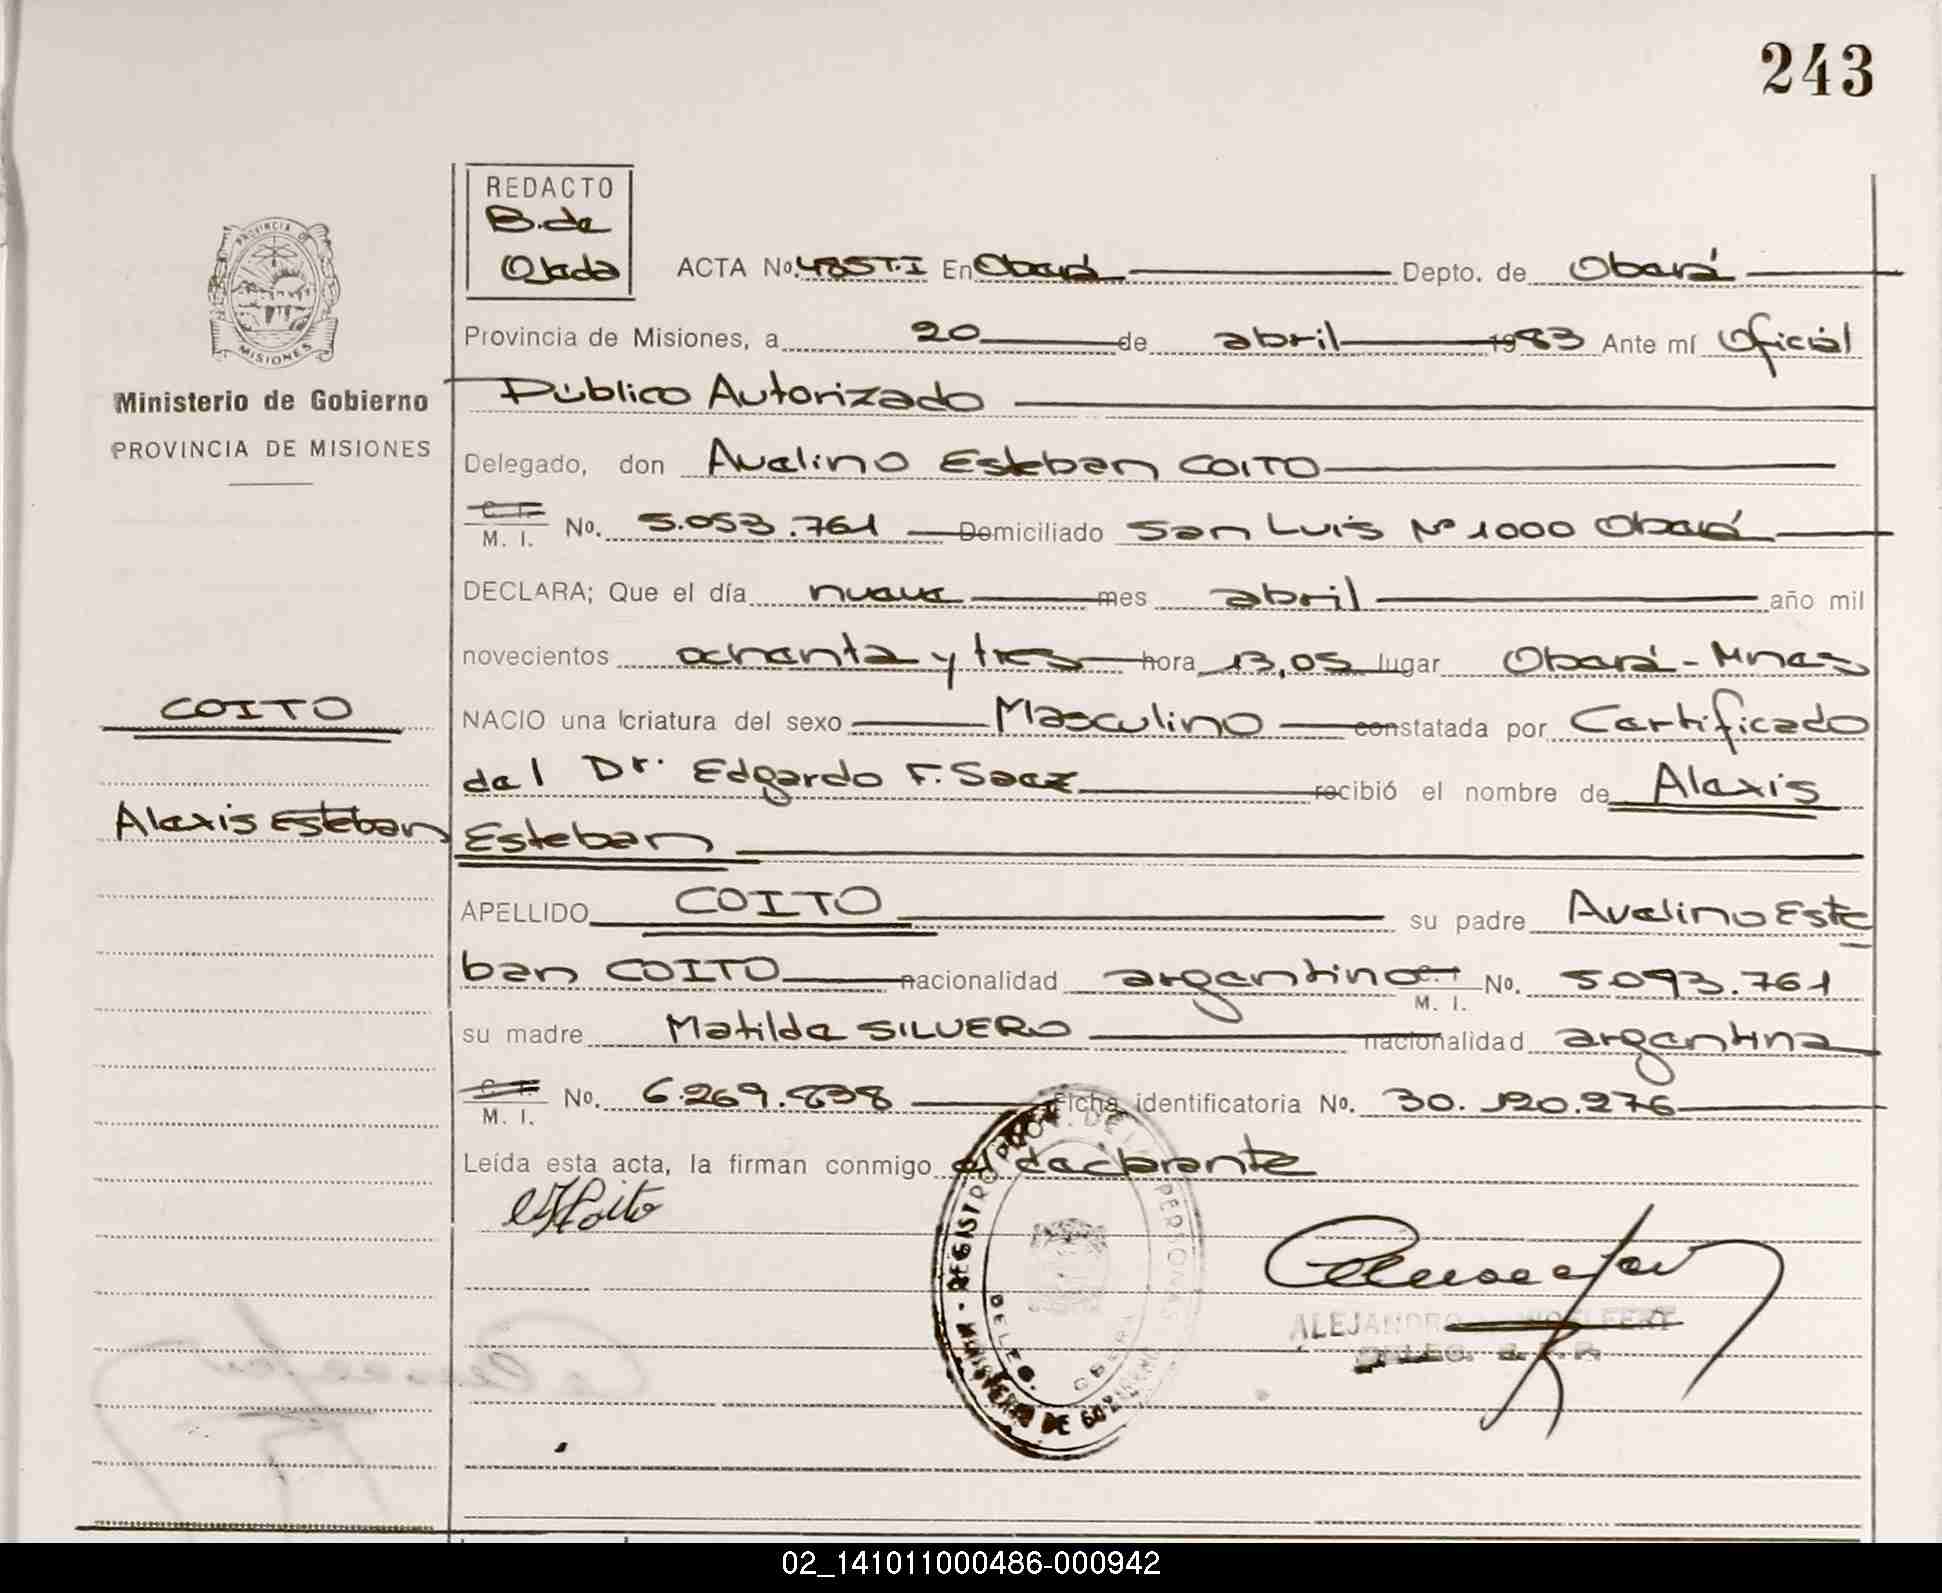 243
REDACTO
B. de
Ojeda
PROVINCIA DE
MISIONES
Ministerio de Gobierno
PROVINCIA DE MISIONES
ACTA No. 485 T.I En Oberá Depto. de Oberá
Provincia de Misiones, a 20 de abril 1983 Ante mí Oficial
Público Autorizado
Delegado, don Avelino Esteban COITO
C. I.
M. I. No. 5.053.761 Domiciliado San Luis Nº 1000 Oberá
DECLARA; Que el día nueve mes abril año mil
novecientos ochenta y tres hora 13,05 lugar Oberá - Mnes
COITO
NACIO una criatura del sexo Masculino constatada por Certificado
del Dr. Edgardo F. Saez recibió el nombre de Alexis
Alexis Esteban
Esteban
APELLIDO COITO su padre Avelino Este
ban COITO nacionalidad argentino M. I. No. 5.093.761
su madre Matilde SILVERO nacionalidad argentina
C. I.
M. I. No. 6.269.838 Ficha identificatoria No. 30.120.276
Leída esta acta, la firman conmigo el declarante
Coito
REGISTRO PROV. DE LAS PERSONAS
DELEG. OBERA
MINISTERIO DE GOBIERNO
ALEJANDRO
DELEG.
02_141011000486-000942